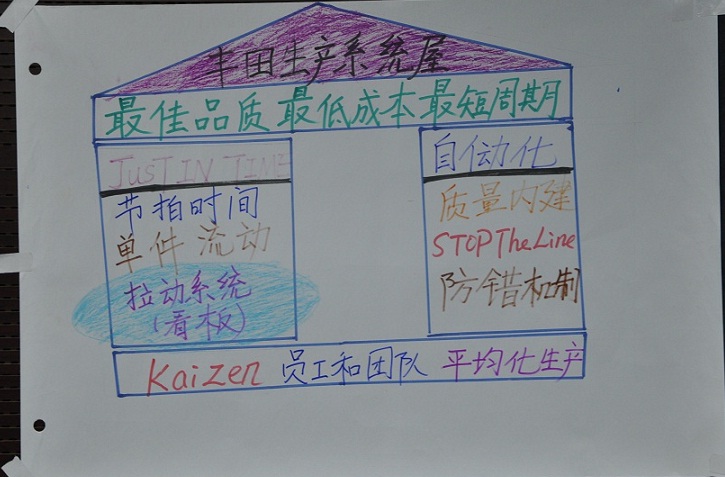 丰田生产系统屋
最佳品质 最低成本 最短周期
JUST IN TIME
节拍时间
单件流动
拉动系统
(看板)
自动化
质量内建
STOP The Line
防错机制
Kaizen 员工和团队 平均化生产